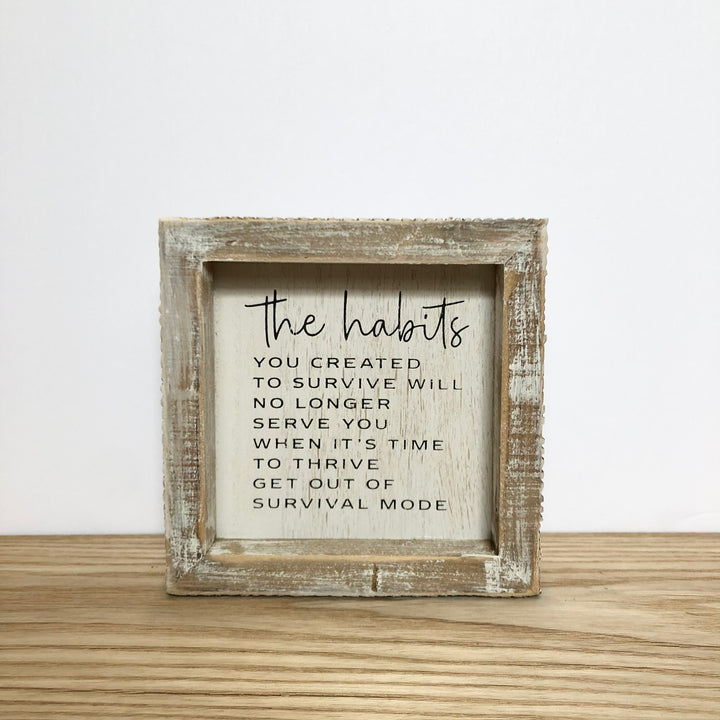 the habits
YOU CREATED
TO SURVIVE WiLL
NO LONGER
SERVE YOU
WHEN IT'S TIME
TO THRIVE
GET OUT OF
SURVIVAL MODE